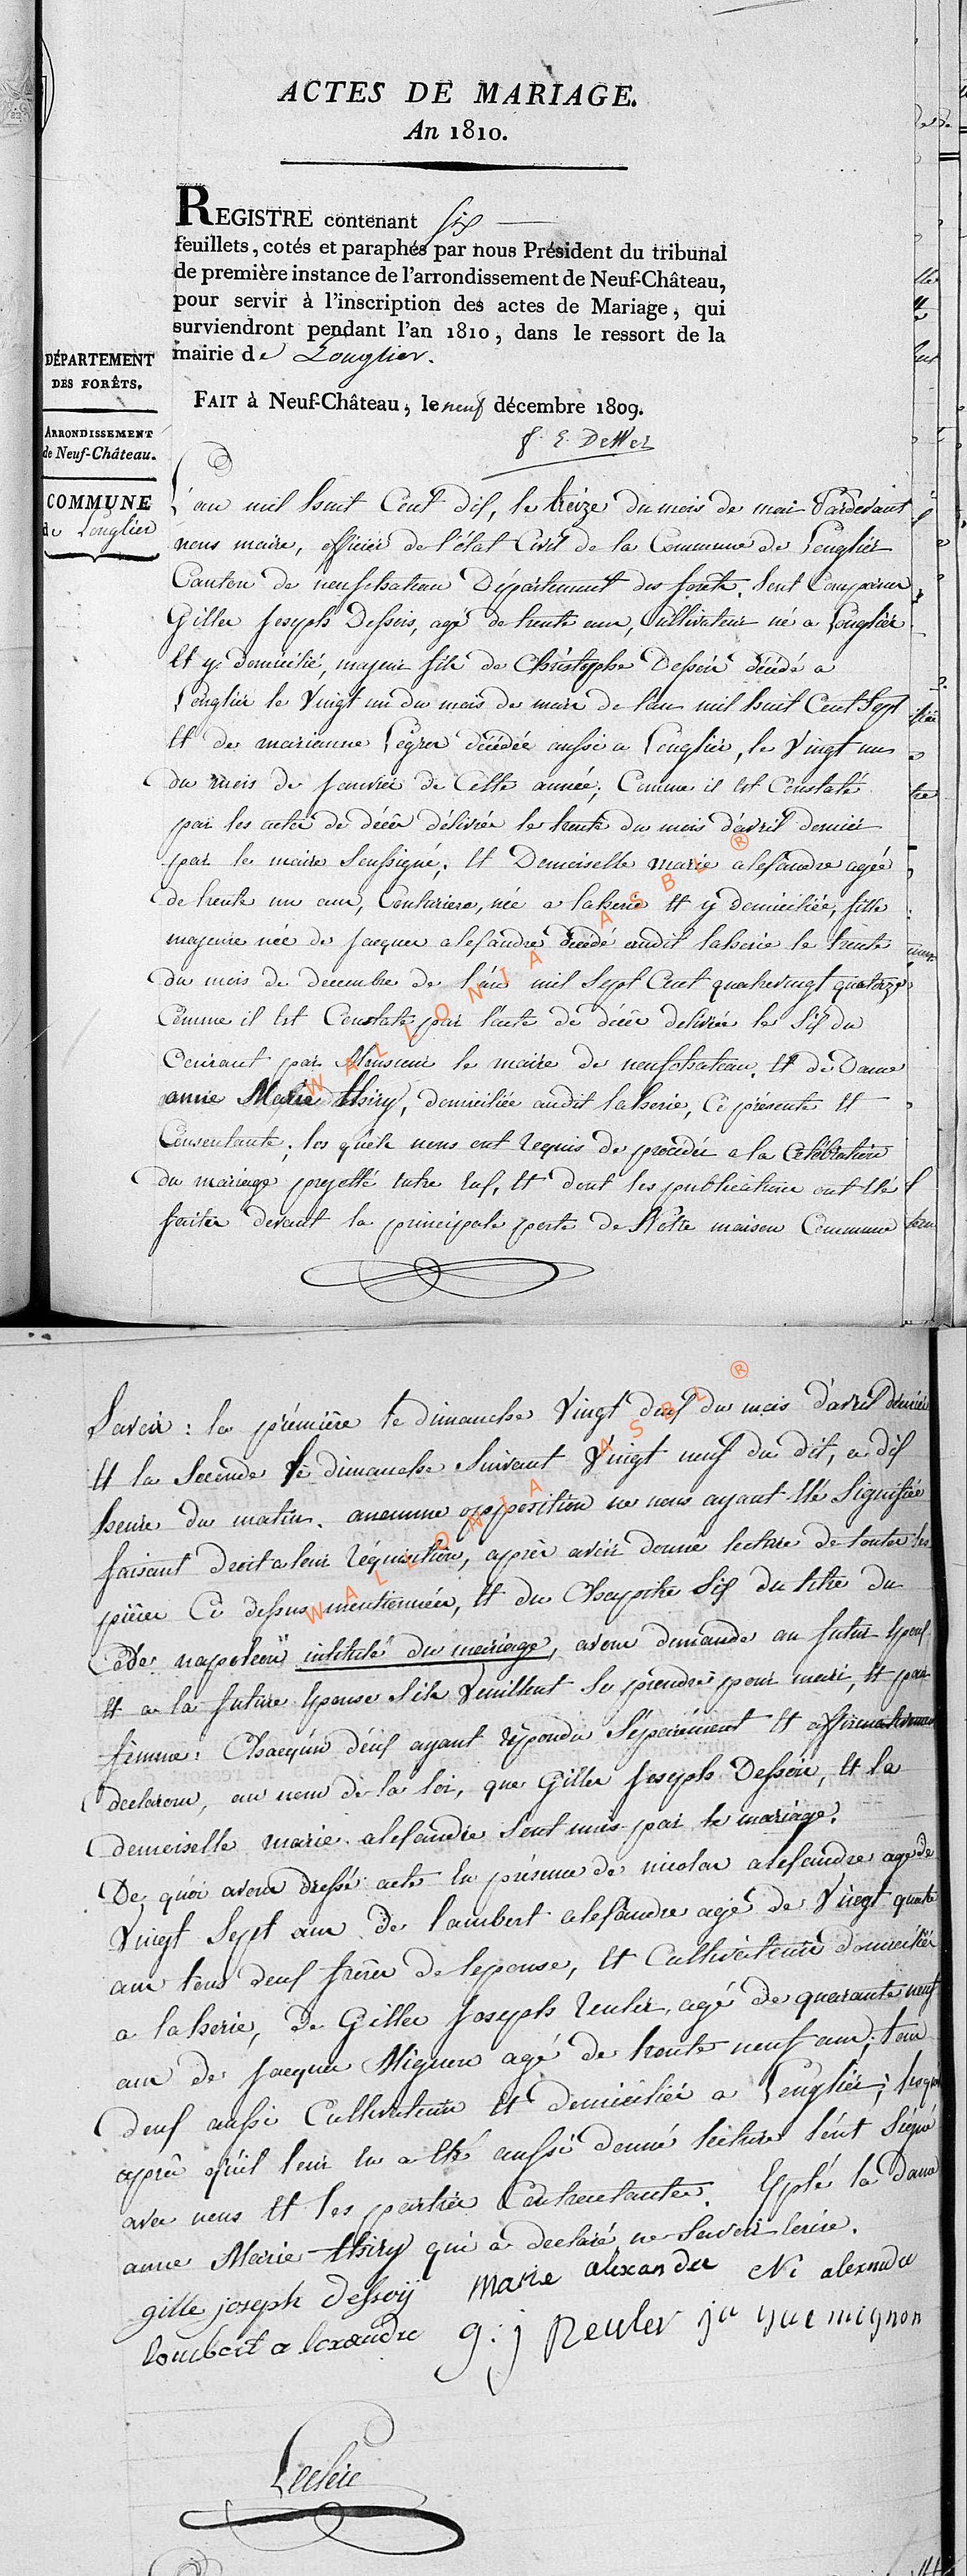 ACTES DE MARIAGE.
An 1810.
REGISTRE contenant six
feuillets, cotés et paraphés par nous Président du tribunal
de première instance de l'arrondissement de Neuf-Château,
pour servir à l'inscription des actes de Mariage, qui
surviendront pendant l'an 1810, dans le ressort de la
mairie de Longlier.
FAIT à Neuf-Château, le neuf décembre 1809.
DÉPARTEMENT
DES FORÊTS.
ARRONDISSEMENT
de Neuf-Château.
COMMUNE
de Longlier
L'an mil huit Cent dix, le treize du mois de mai Pardevant
nous maire, officier de l'état Civil de la Commune de Longlier
Canton de neufchateau Département des forêts. Sont Comparus
Gilles Joseph Dessois, agé de trente ans, Cultivateur né a Longlier
Et y domicilié, majeur fils de Christophe Dessoi décédé a
Longlier le Vingt un du mois de mars de l'an mil huit Cent Sept
Et de marianne Légrer décédée aussi a Longlier, le Vingt un
du mois de Janvier de Cette année; Comme il Est Constaté
par les actes de décès délivrés le trente du mois d'avril dernier
par le maire Soussigné; Et Demoiselle marie alexandre agée
de trente un ans, Couturiere, née a laherie Et y domiciliée, fille
majeure née de Jacques alexandre décédé audit laherie le trente
du mois de decembre de l'an mil Sept Cent quatrevingt quatorze
Comme il Est Constaté par l'acte de décès delivrée le Six du
Courant par Monsieur le maire de neufchateau. Et de Dame
anne Marie thiry, domiciliée audit laherie, Ci présente Et
Consentante; les quels nous ont requis de procéder a la Célébration
du mariage projetté entre Eux, Et dont les publications ont Eté
faites devant la principale porte de Nôtre maison Commune
Savoir: la première le dimanche Vingt deux du mois d'avril dernier
Et la Seconde le dimanche Suivant Vingt neuf du dit, a dix
heure du matin. aucunne opposition ne nous ayant Eté Signifiée
faisant droit a leur réquisition, après avoir donné lecture de toutes les
pièces Ci dessus mentionnées, Et du Chapitre Six du titre du
Code napoléon intitulé du mariage, avons demandé au futur Epoux
Et a la future Epouse S'ils Veuillent Se prendre pour mari, Et pour
femme: Chacqu'un d'eux ayant répondu Séparément Et affirmativement
declarons, au nom de la loi, que Gilles Joseph Dessoi, Et la
demoiselle marie alexandre Sont unis par le mariage.
De quoi avons dressé acte En présence de nicolas alexandre agé de
Vingt Sept ans de lambert alexandre agé de Vingt quatre
ans tous deux frères de l'epouse, Et Cultivateurs domiciliés
a laherie, de Gilles Joseph reuler, agé de quarante neuf
ans de Jacques Mignon agé de trente neuf ans; tous
deux aussi Cultivateurs Et domiciliés a Longlier; lesquels
après qu'il leur En a Eté aussi donné lecture l'ont Signé
avec nous Et les parties Contractantes. Exple la dame
anne Marie thiry qui a declaré ne Savoir Ecrire.
gille joseph dessoÿ marie alexandre Ni alexandre
lambert alexandre g: j Reuler jacque mignon
WALLONIA ASBL ®
WALLONIA ASBL ®